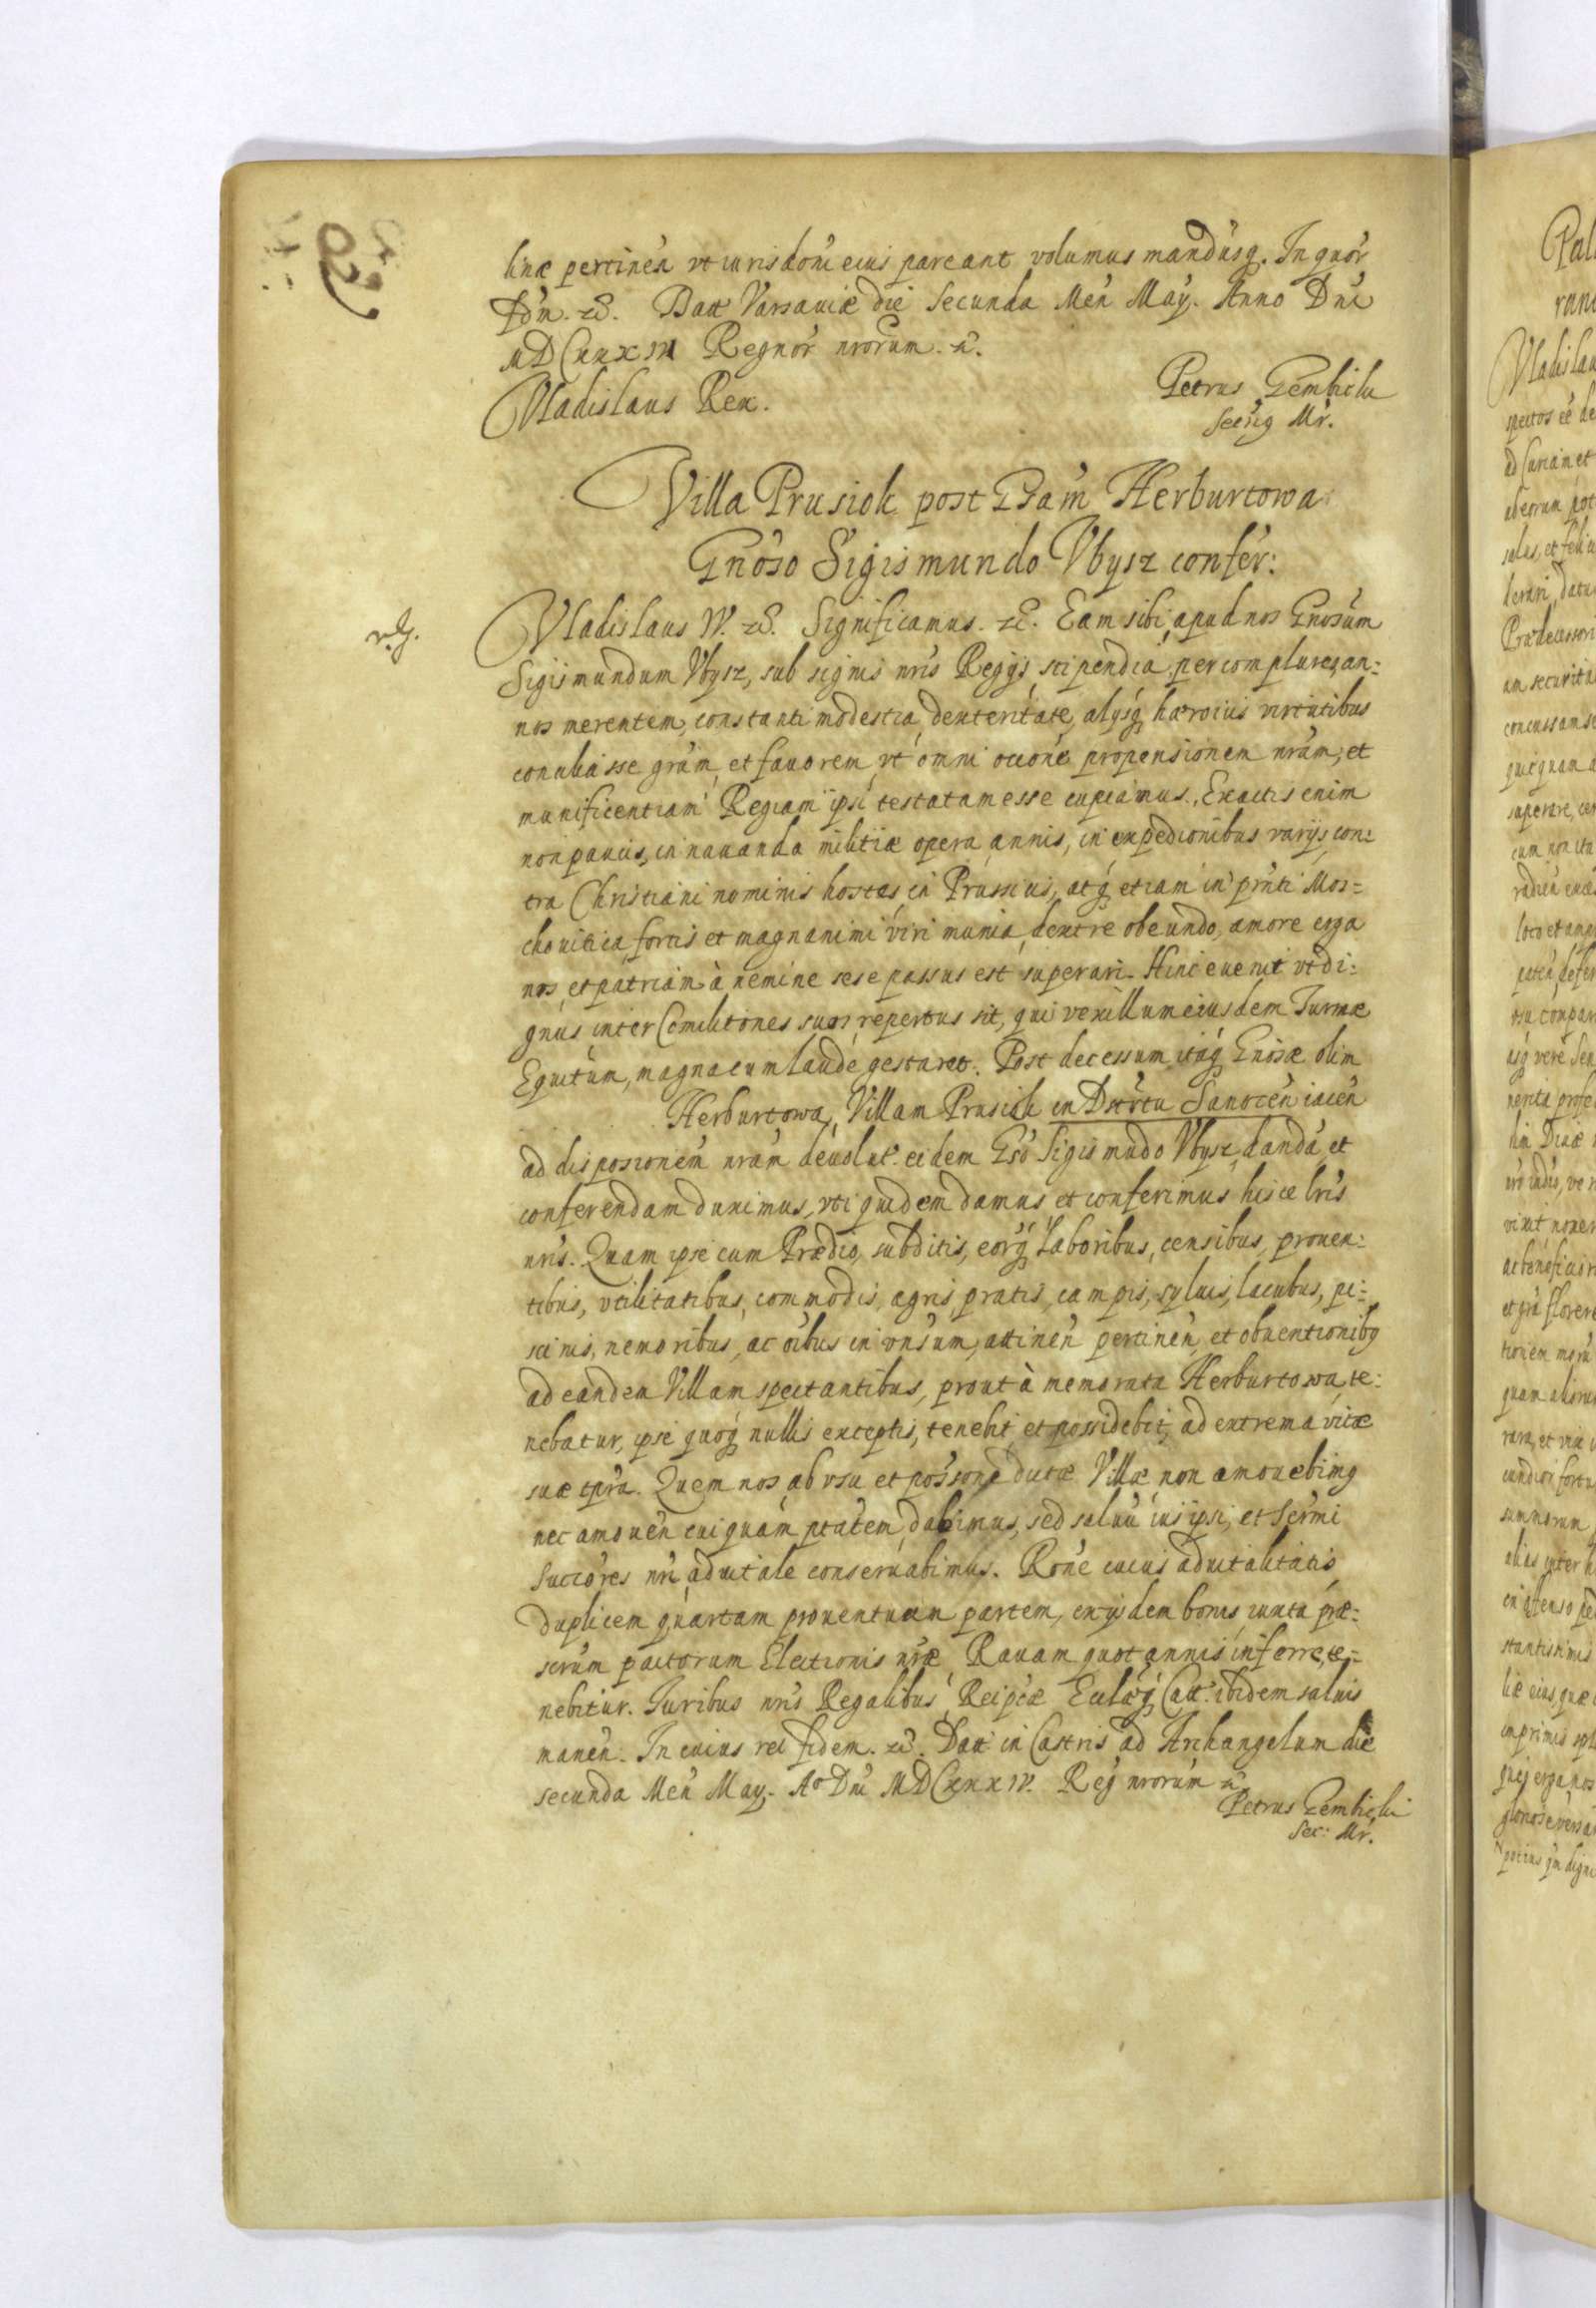 linæ pertineñ vt iurisdoni eius pareant volumus mandusq. In quor
fdm. etc. Datt Varsaviæ die secunda Men May. Anno Dni
MDCXXXIV Regnor nrorum. etc.
Vladislaus Rex.
Petrus Gembicki
Secrig Mr.
Villa Prusiek post Gsam Herburtowa
Gnoso Sigismundo Vbysz confer:
r. g.
Vladislaus IV. etc. Significamus. etc. Eam sibi apud nos Gnosum
Sigismundum Vbysz, sub signis nris Regijs stipendia per complures an:
nos merentem, constanti modestia, dexteritate, alijsq heroicis virtutibus
conciliasse gram, et favorem, vt omni occone propensionem nram, et
munificentiam Regiam ipsi testatam esse cupiamus. Exactis enim
non paucis, in navanda militiæ opera, annis, in expedionibus varijs con:
tra Christiani nominis hostes in Prussijs, atq etiam in prnti Mos=
chovitica fortis et magnanimi viri munia dextre obeundo, amore erga
nos, et patriam à nemine sese passus est superari. Hinc evenit vt di:
gnus inter Comilitones suos repertus sit, qui vexillum eiusdem Turmæ
Equitum, magna cum laude gestaret. Post decessum itaq Gnosæ olim
Herburtowa, Villam Prusiek in Dstrtu Sanoceñ iaceñ
ad disposionem nram devolut. eidem Gso Sigismudo Vbysz danda et
conferendam duximus, vti quidem damus et conferimus hisce lris
nris. Quam ipse cum Prædio, subditis, eorq laboribus, censibus, proven:
tibus, vtilitatibus, commodis, agris, pratis, campis, syluis, lacubus, pi:
scinis, nemoribus, ac oibus in vnsum, attineñ pertineñ, et obventionibq
ad eandem Villam spectantibus, prout à memorata Herburtowa te:
nebatur, ipse quoq nullis exceptis, tenebit, et possidebit, ad extrema vitæ
suæ tpra. Quem nos ab vsu et possone dictæ Villæ non amovebimq
nec amoven cuiquam ptatem dabimus, sed saluu ius ipsi, et Sermi
Succores nri aduitale conservabimus. Rone cuius aduitalitatis
duplicem quartam proventuum partem, ex ijsdem bonis iuxta præ:
scrum pactorum Electionis nræ Rauam quotannis inferre, te=
nebitur. Iuribus nris Regalibus, Reipcæ Ecclæq Catt. ibidem saluis
maneñ. In cuius rei fidem. etc. Datt in Castris ad Archangelum die
secunda Men May. Ao Dni MDCXXXIV. Reg nrorum etc.
Petrus Gembicki
Sec: Mr.